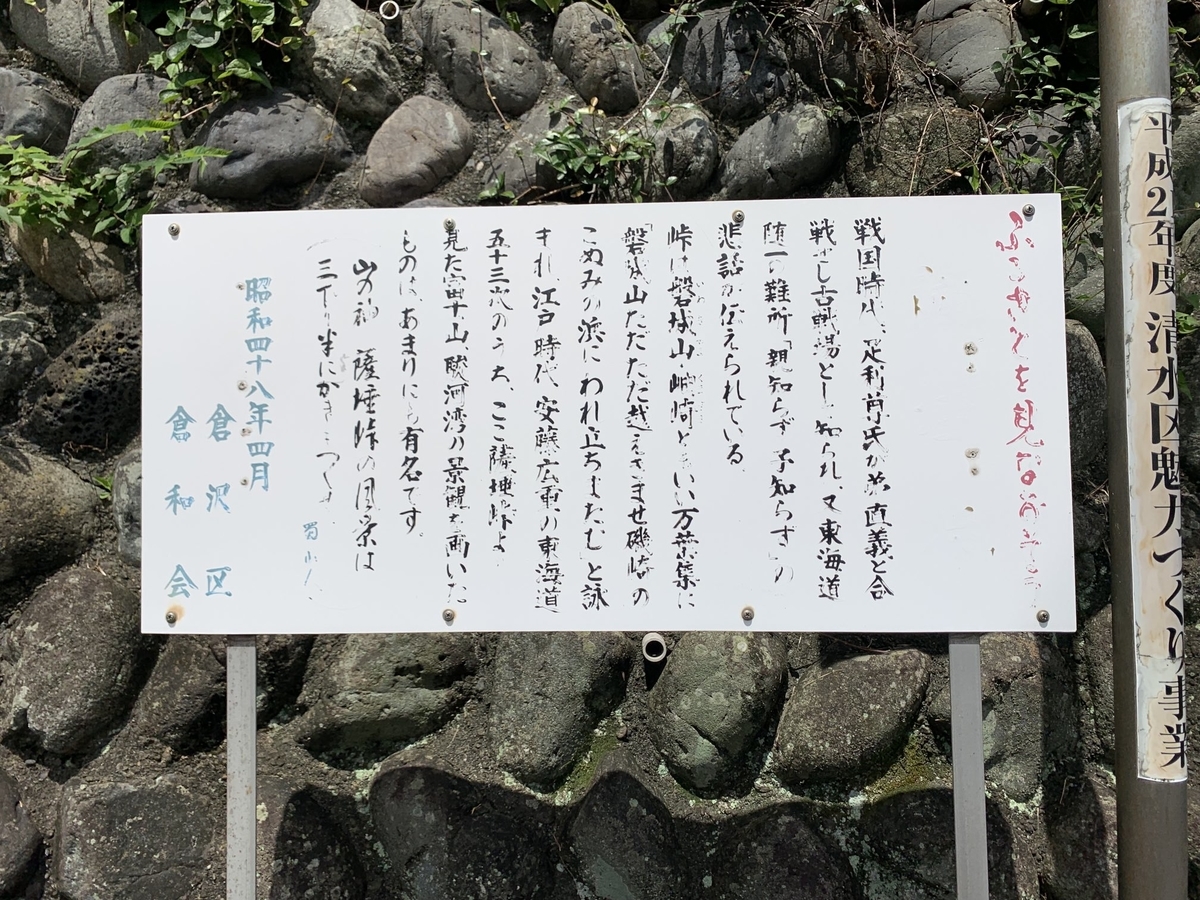 平成2年度 清水区魅力づくり事業
ふるさとを見なおそう
戦国時代、足利尊氏が弟直義と合
戦せし古戦場として知られ、又東海道
随一の難所「親知らず子知らず」の
悲話が伝えられている。
峠は磐城山・岫崎ともいい万葉集に
「磐城山ただただ越えきませ磯崎の
こぬみの浜にわれ立ちまたむ」と詠
まれ、江戸時代、安藤広重の東海道
五十三次のうち、ここ薩埵峠より
見た富士山、駿河湾の景観を画いた
ものは、あまりにも有名です。
山の神 薩埵峠の風景は
三下り半にかき つくさ
蜀山人
昭和四十八年四月
倉沢区
倉和会